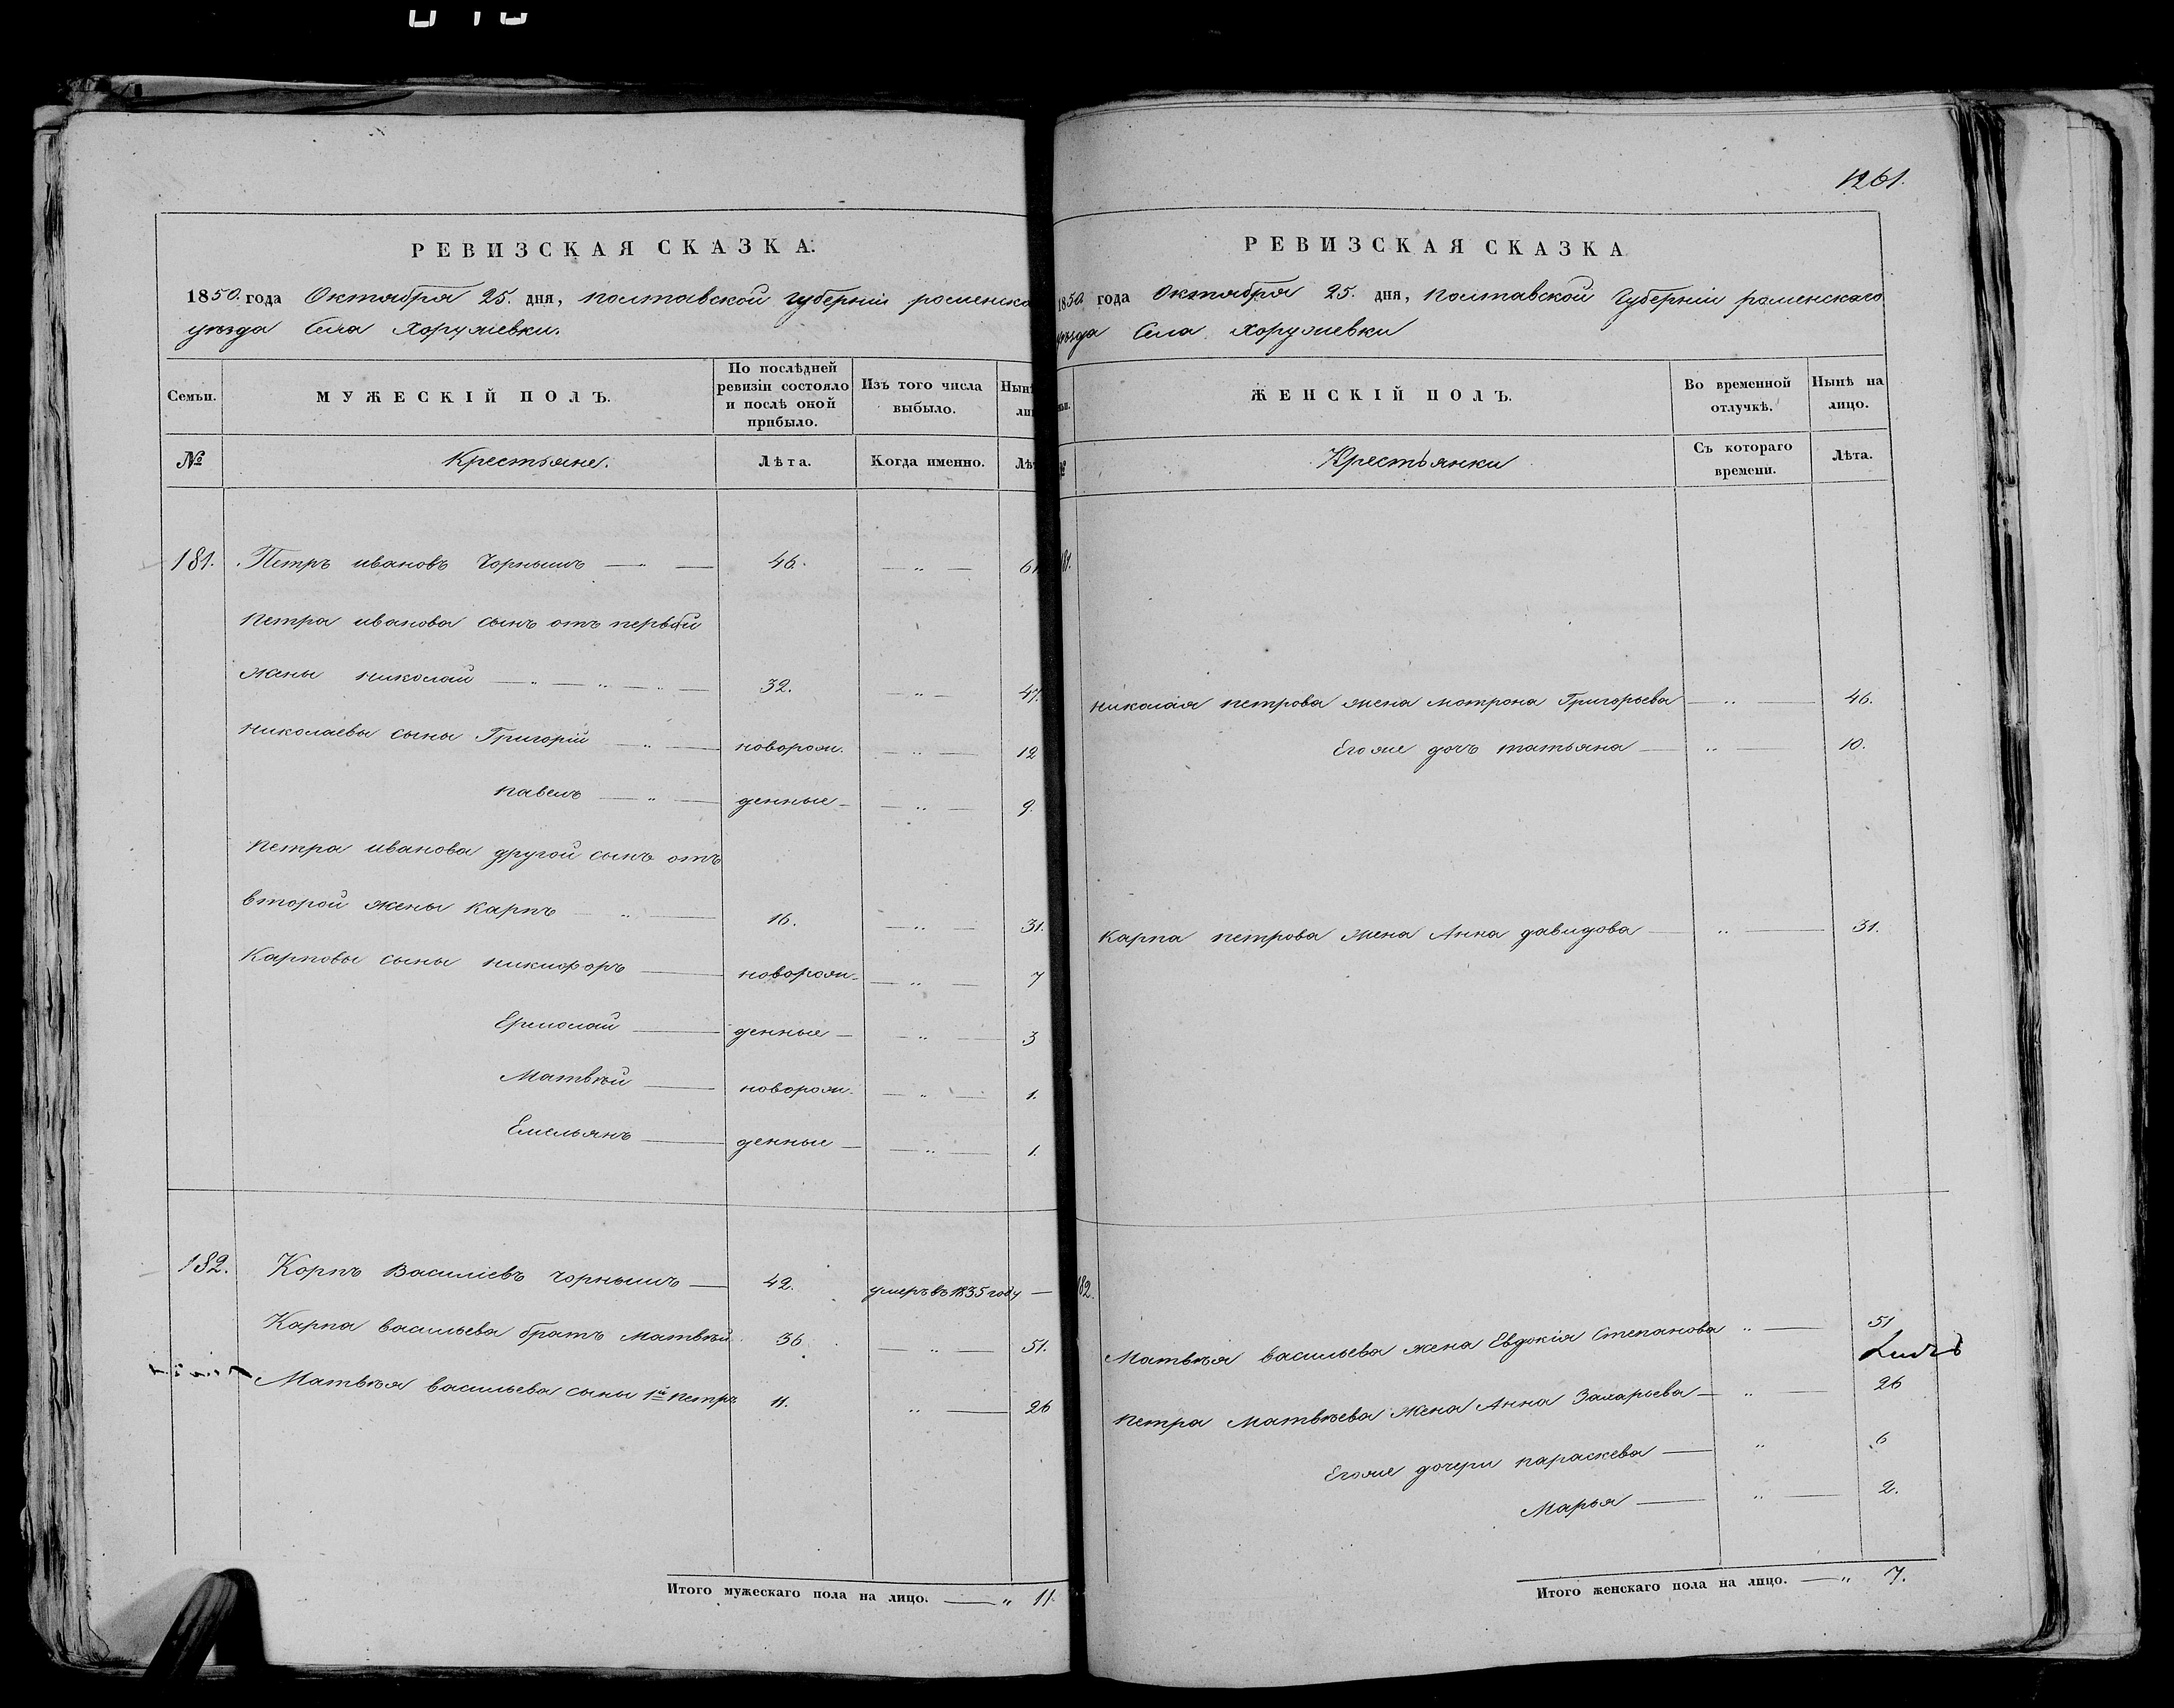 РЕВИЗСКАЯ СКАЗКА.
1850. года Октября 25. дня, полтавской губерніи роменска
уѣзда Села Хоружевки.
Семьи. МУЖЕСКІЙ ПОЛЪ. По послѣдней ревизіи состояло и послѣ оной прибыло. Изъ того числа выбыло. Нынѣ
№ Крестьяне. Лѣта. Когда именно. Лѣт
181. Петръ ивановъ Чорнышъ — " — 46. — " — 61
Петра иванова сынъ отъ первой
жены николай — " — " — " — 32. — " — 47.
николаевы сыны Григорій — " — новорож. — " — 12
павелъ — " — денные — — " — 9.
Петра иванова другой сынъ отъ
второй жены карпъ — " — 16. — " — 31.
Карповы сыны никифоръ — новорож. — " — 7
Ермолай — денные — — " — 3
Матвѣй — новорож. — " — 1.
Емельянъ — денные — — " — 1.
182. Корпъ Василіевъ чорнышъ — 42. умеръ въ 1835 году —
Карпа васильева братъ матвѣй 36 — " — 51.
Матвѣя васильева сыны 1й петръ 11. " — 26
Итого мужескаго пола на лицо. — " 11.
1261.
РЕВИЗСКАЯ СКАЗКА
1850. года Октября 25. дня, полтавской Губерніи роменскаго
уѣзда Села Хоружевки
ЖЕНСКІЙ ПОЛЪ. Во временной отлучкѣ. Нынѣ на лицо.
№ Крестьянки Съ котораго времени. Лѣта.
181.
николая петрова жена мотрона Григорьева — " — 46.
Егоже дочь татьяна — " — 10.
Карпа петрова жена Анна давидова — " — 31.
182.
Матвѣя васильева жена Евдокія Степанова " — 51
петра Матвѣева жена Анна Захарьева — " — 26
Егоже дочери параскева — " 6
Марья — " — 2.
Итого женскаго пола на лицо. — " 7.